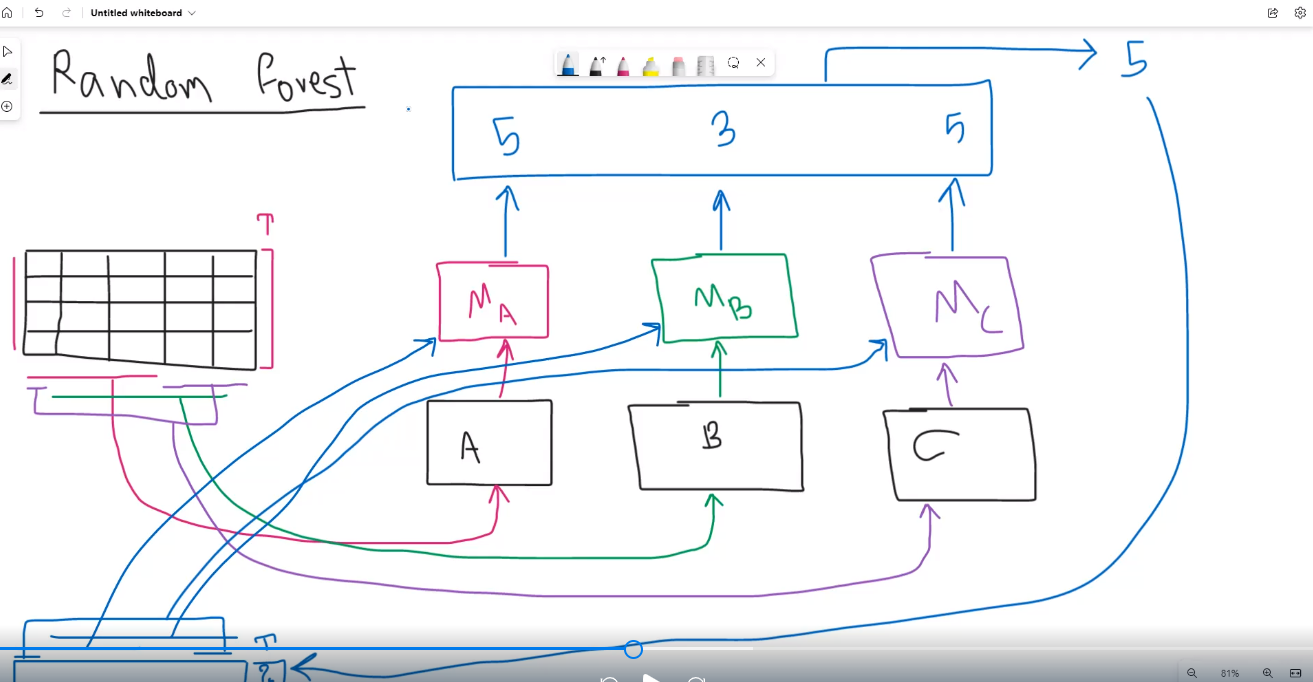 Untitled whiteboard
Random Forest
5
5 3 5
T
M_A M_B M_C
A B C
T
?
81%